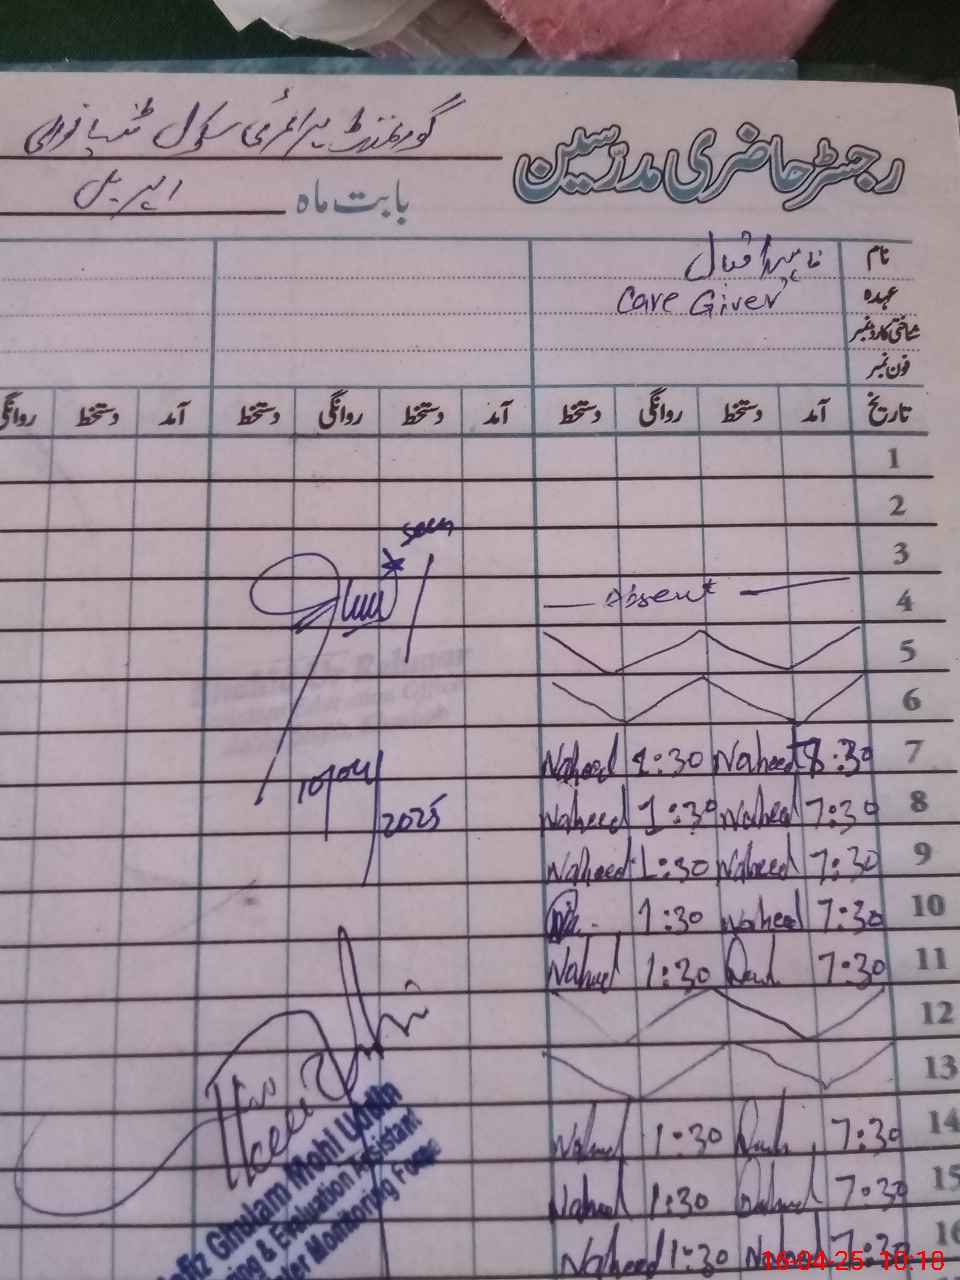 رجسٹر حاضری مدرسین گورنمنٹ پرائمری سکول
بابت ماہ اپریل
نام ناہید اقبال
عہدہ Care Giver
شناختی کارڈ نمبر
فون نمبر
تاریخ آمد دستخط روانگی دستخط آمد دستخط روانگی دستخط آمد دستخط روانگی
1
2
3
seen
4 Absent
5
6
7 8:30 Naheed 1:30 Naheed
8 7:30 Naheed 1:30 Naheed
9 7:30 Naheed 1:30 Naheed
10/04/2025
10 7:30 Naheed 1:30
11 7:30 1:30 Naheed
12
13
14 7:30 1:30 Naheed
15 7:30 1:30 Naheed
16 7:30 Naheed 1:30 Naheed
Hafiz Ghulam Mohi Uddin
ing & Evaluation Assistant
ter Monitoring Force
16-04-25 10:18